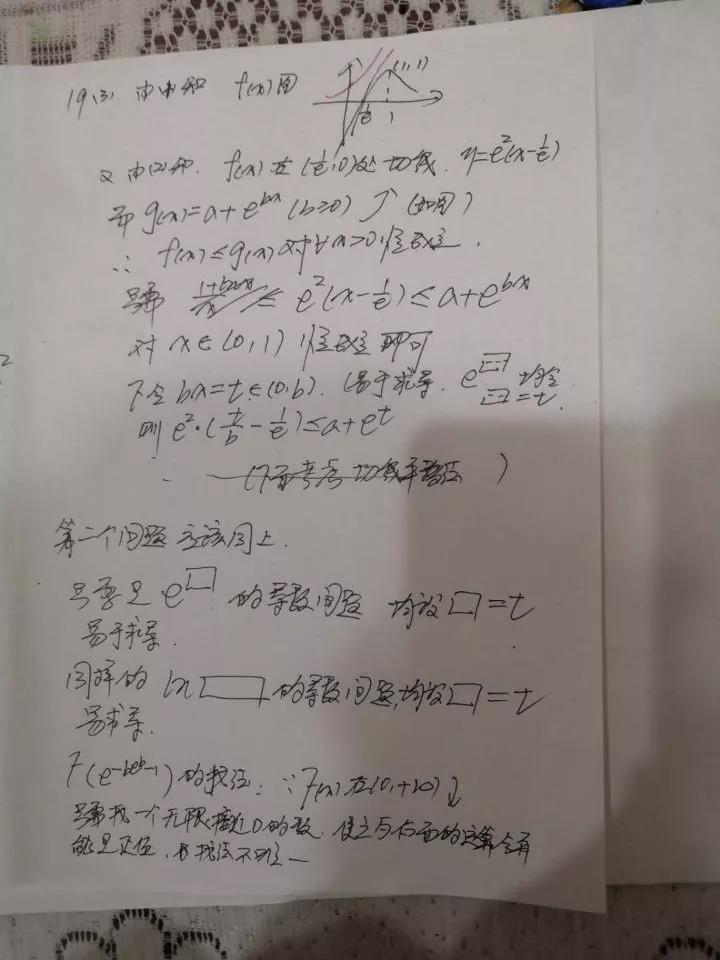 19(3) 由(1)知 f(x)图
(1,1)
1/e 1
又由(2)知. f(x)在(1/e,0)处切线. y=e²(x-1/e)
而 g(x)=a+e^{bx} (b>0) ↑ (如图)
∴ f(x)≤g(x) 对∀x>0恒成立.
只需 e²(x-1/e)≤a+e^{bx}
对 x∈(0,1) 恒成立 即可
下令 bx=t∈(0,b). (易于求导. e^□ 均令 □=t.
则 e²·(t/b-1/e)≤a+e^t
(下面参考 切线 )
第二个问题 应该同上.
只要是 e^□ 的导数问题 均设□=t
易于求导.
同样的 ln□ 的导数问题,均设□=t
易求导.
F(e^{-be^b-1})的找法: ∵F(x)在(0,+∞)↓
只需找一个无限接近0的数. 使之与后面的运算会有
能是正值, 找法不唯一